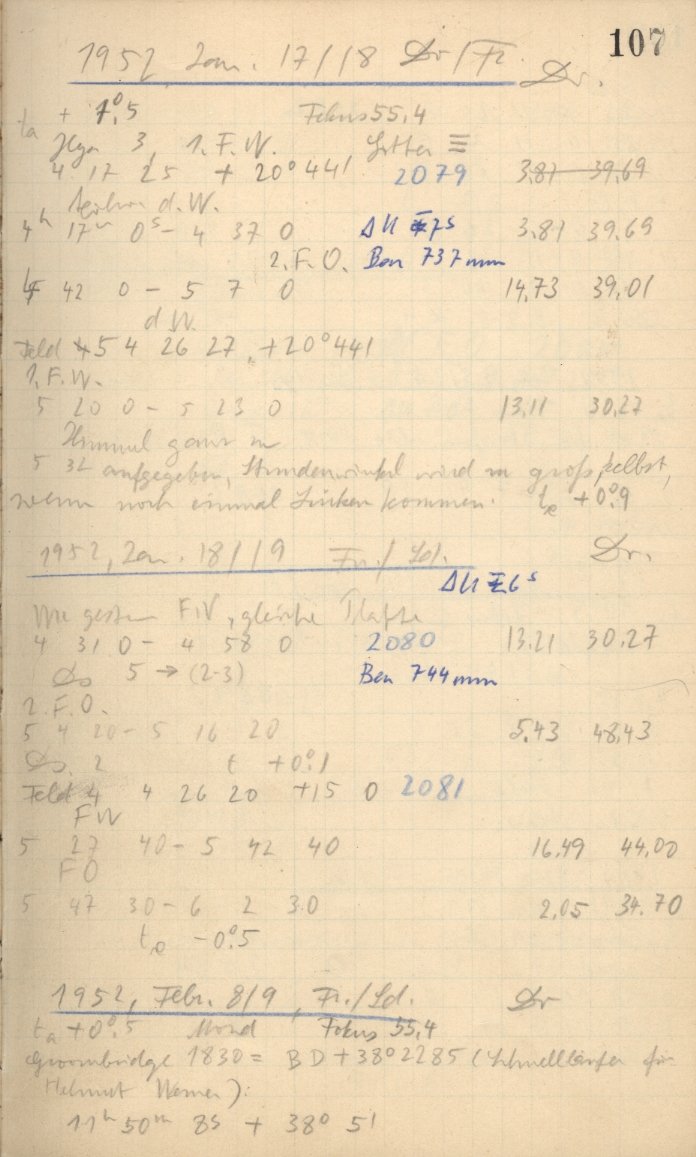 107
1952 Jan. 17/18 Do/Fr. Dr.
ta + 1°,5 Fokus 55,4
3, 1. F.W. Gitter ≡
4 17 25 + 20°44' 2079 3,87 39,69
d. W.
4h 17m 0s - 4 37 0 ΔU 7s 3,87 39,69
2. F.O. Bar 737mm
4 42 0 - 5 7 0 14,73 39,01
d. W.
Feld 5 4 26 27, +20°44'
1. F.W.
5 20 0 - 5 23 0 13,11 30,27
Himmel ganz zu
5 32 aufgegeben, Stundenwinkel wird zu groß, selbst,
wenn noch einmal Lücken kommen. te +0°,9
1952, Jan. 18/19 Fr./Sd. Dr.
ΔU 6s
Wie gestern F.W., gleiche Platte
4 31 0 - 4 58 0 2080 13,21 30,27
Ds 5 → (2-3) Bar 744mm
2. F.O.
5 4 20 - 5 16 20 5,43 48,43
Ds. 2 t +0°,1
Feld 4 4 26 20 +15 0 2081
FW
5 27 40 - 5 42 40 16,49 44,00
FO
5 47 30 - 6 2 30 2,05 34,70
te -0°,5
1952, Febr. 8/9, Fr./Sd. Dr
ta +0°,5 Mond Fokus 55,4
Groombridge 1830 = BD +38°2285 (Schnellläufer für
Helmut Werner):
11h 50m 8s + 38° 5'